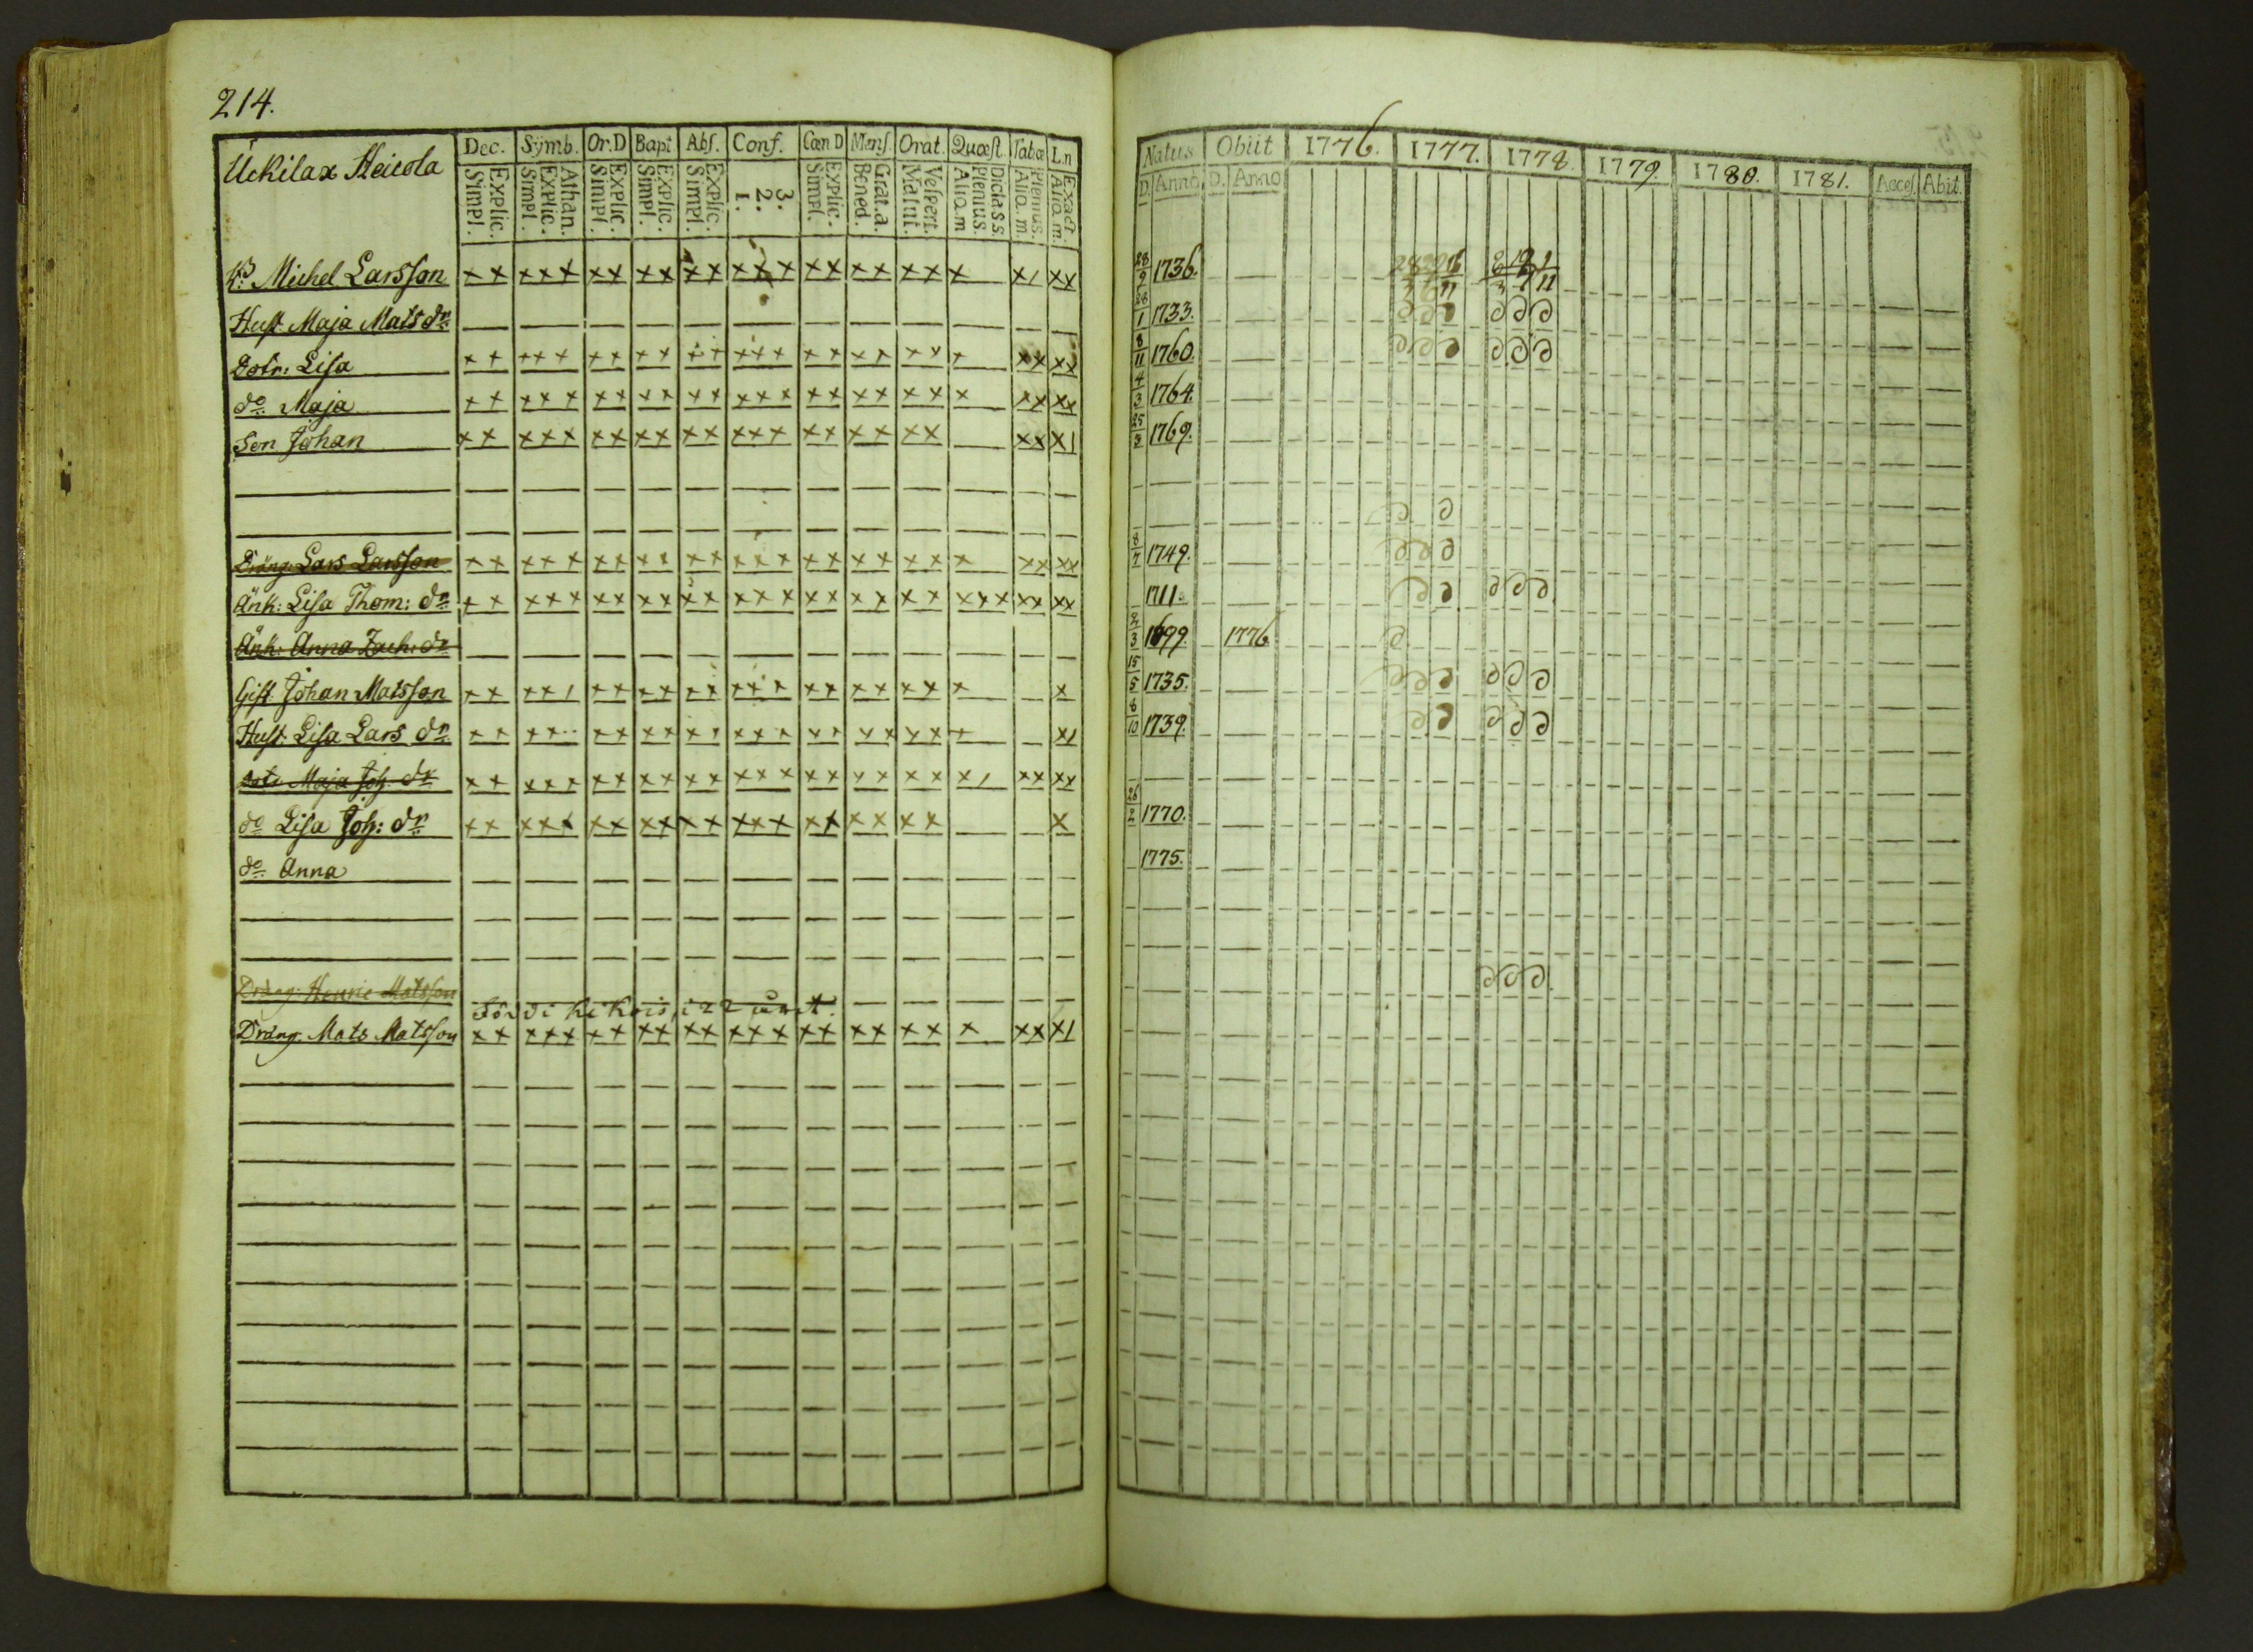 214.
Uckilax Heicola
Dec. Sÿmb. Or.D Bapt Abſ. Conſ. Cœn D Menſ. Orat. Quæſt. Tabæ Ln
Simpl. Explic. Simpl. Explic. Athan. Simpl. Explic. Simpl. Explic. Simpl. Explic. 1. 2. 3. Simpl. Explic. Bened. Grat.a. Matut. Veſpert. Aliq.m Plenius. Dicta S S. Aliq.m. Plenius. Aliq.m. Exact.
Natus Obiit 1776. 1777. 1778. 1779. 1780. 1781. Acceſ. Abit.
D. Anno D. Anno
Michel Larsſon 28/9 1736.
Huſt. Maja Mats dr. 28/1 1733.
Dotr: Liſa 8/11 1760.
do. Maja 4/3 1764.
Son Johan 25/3 1769.
Dräng. Lars Larsſon 8/7 1749.
Änk: Liſa Thom: dr. 1711.
Änk: Anna Zach: dr 1699. 1776
Gift Johan Matsſon 15/5 1735.
Huſt. Liſa Lars dr. 8/10 1739.
Maja Joh. dr
do Liſa Joh: dr. 26/2 1770.
do. Anna 1775.
Dräng. Henric Matsſon
Dräng. Mats Matsſon